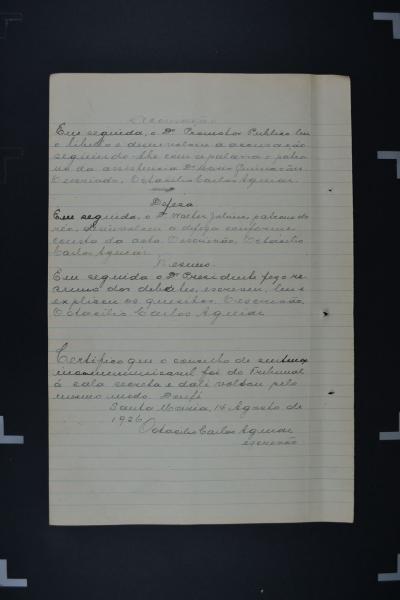 Accusação
Em seguida, o Dr. Promotor Publico leu
o libello e desenvolveu a accusação
seguindo-lhe com a palavra o patro
no da assistencia Dr. Guimarães
O escrivão, Octacilio Carlos Aguiar
Defeza
Em seguida, o Dr. Walter Jobim, patrono do
réo, desenvolveu a defeza conforme
consta da acta. O escrivão, Octacilio
Carlos Aguiar
Resumo
Em seguida o Dr. Presidente fez o re
sumo dos debates, escreveu, leu e
explicou os quesitos. O escrivão,
Octacilio Carlos Aguiar
Certifico que o conselho de sentença
incommunicavel foi do Tribunal
á sala secreta e dali voltou pelo
mesmo modo. Doufé
Santa Maria, 14 Agosto de
1926
Octacilio Carlos Aguiar
escrivão